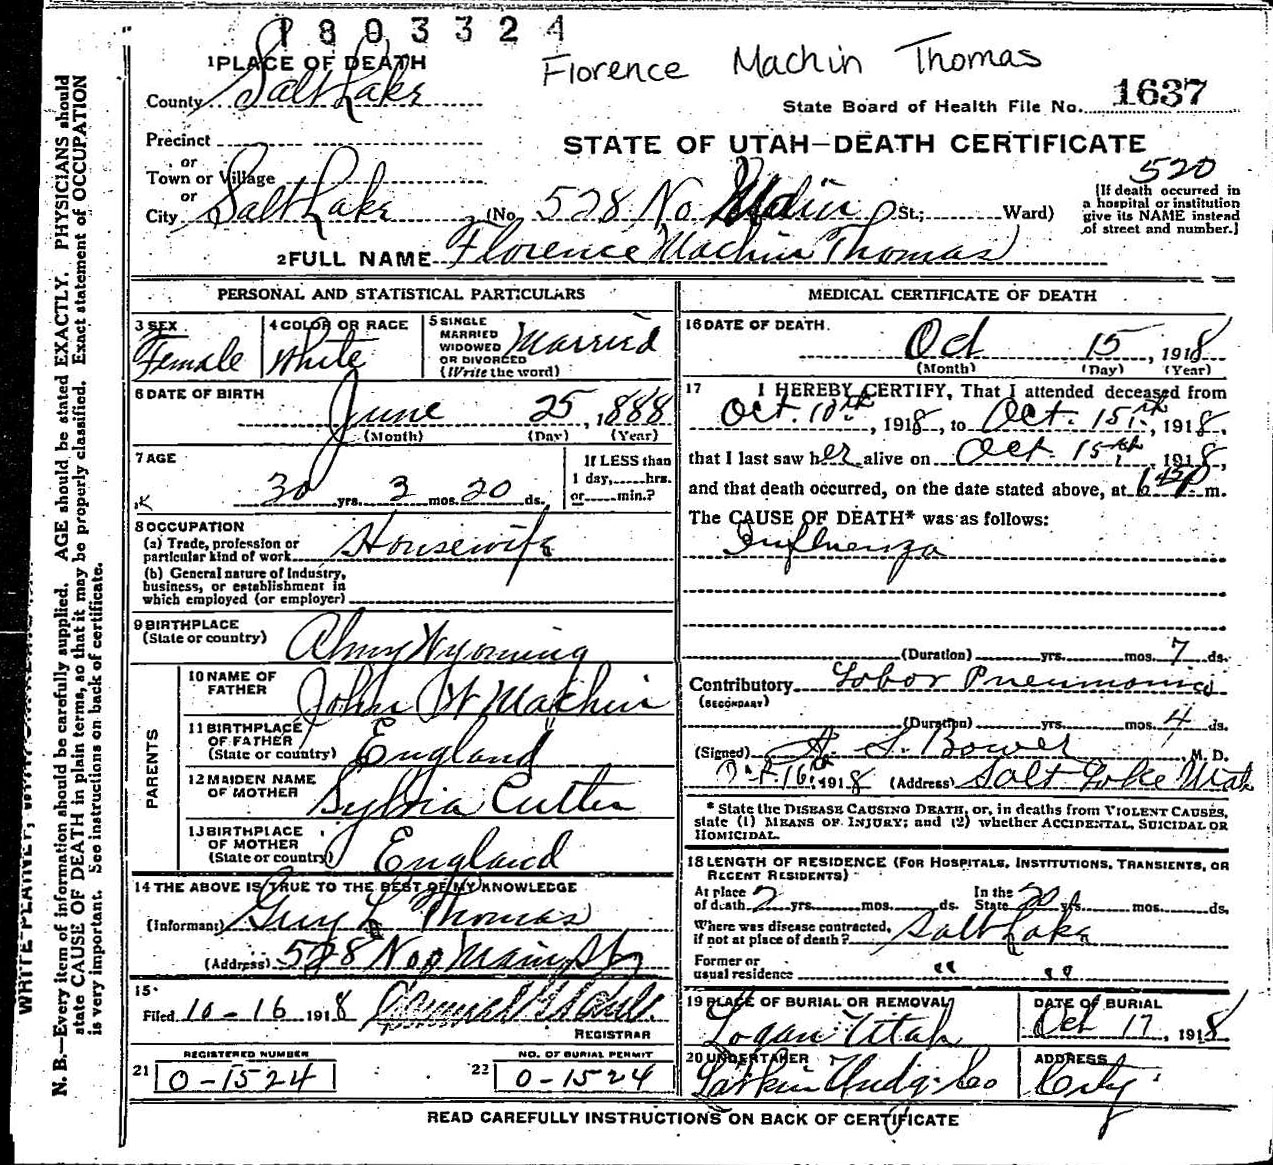 1803324
Florence Machin Thomas
1 PLACE OF DEATH
County Salt Lake
State Board of Health File No. 1637
Precinct
STATE OF UTAH—DEATH CERTIFICATE
or
Town or Village
or
520
City Salt Lake (No. 528 No Main St.; Ward)
(If death occurred in
a hospital or institution
give its NAME instead
of street and number.)
2 FULL NAME Florence Machin Thomas
PERSONAL AND STATISTICAL PARTICULARS
3 SEX
Female
4 COLOR OR RACE
White
5 SINGLE
MARRIED
WIDOWED
OR DIVORCED
(Write the word)
Married
6 DATE OF BIRTH
June 25, 1888
(Month) (Day) (Year)
7 AGE
30 yrs. 3 mos. 20 ds.
If LESS than
1 day, hrs.
or min.?
8 OCCUPATION
(a) Trade, profession or
particular kind of work Housewife
(b) General nature of Industry,
business, or establishment in
which employed (or employer)
9 BIRTHPLACE
(State or country) Almy Wyoming
PARENTS
10 NAME OF
FATHER John W Machin
11 BIRTHPLACE
OF FATHER
(State or country) England
12 MAIDEN NAME
OF MOTHER Sylvia Cutler
13 BIRTHPLACE
OF MOTHER
(State or country) England
14 THE ABOVE IS TRUE TO THE BEST OF MY KNOWLEDGE
(Informant) Guy L Thomas
(Address) 528 No Main St
15
Filed 10-16 1918
REGISTRAR
REGISTERED NUMBER
21 0-1524
NO. OF BURIAL PERMIT
22 0-1524
MEDICAL CERTIFICATE OF DEATH
16 DATE OF DEATH
Oct 15, 1918
(Month) (Day) (Year)
17 I HEREBY CERTIFY, That I attended deceased from
Oct. 10th, 1918, to Oct. 15th, 1918,
that I last saw her alive on Oct 15th, 1918,
and that death occurred, on the date stated above, at m.
The CAUSE OF DEATH* was as follows:
Influenza
(Duration) yrs. mos. 7 ds.
Contributory Lobar Pneumonia
(SECONDARY)
(Duration) yrs. mos. 4 ds.
(Signed) A. S. Bower M. D.
Oct 16th 1918 (Address) Salt Lake Utah
* State the DISEASE CAUSING DEATH, or, in deaths from VIOLENT CAUSES,
state (1) MEANS OF INJURY; and (2) whether ACCIDENTAL, SUICIDAL OR
HOMICIDAL.
18 LENGTH OF RESIDENCE (FOR HOSPITALS, INSTITUTIONS, TRANSIENTS, OR
RECENT RESIDENTS)
At place
of death 2 yrs. mos. ds.
In the
State 20 yrs. mos. ds.
Where was disease contracted,
if not at place of death? Salt Lake
Former or
usual residence " "
19 PLACE OF BURIAL OR REMOVAL
Logan Utah
DATE OF BURIAL
Oct 17, 1918
20 UNDERTAKER
Larkin Undg. Co
ADDRESS
City
READ CAREFULLY INSTRUCTIONS ON BACK OF CERTIFICATE
WRITE PLAINLY,
N. B.—Every item of information should be carefully supplied. AGE should be stated EXACTLY. PHYSICIANS should
state CAUSE OF DEATH in plain terms, so that it may be properly classified. Exact statement of OCCUPATION
is very important. See instructions on back of certificate.